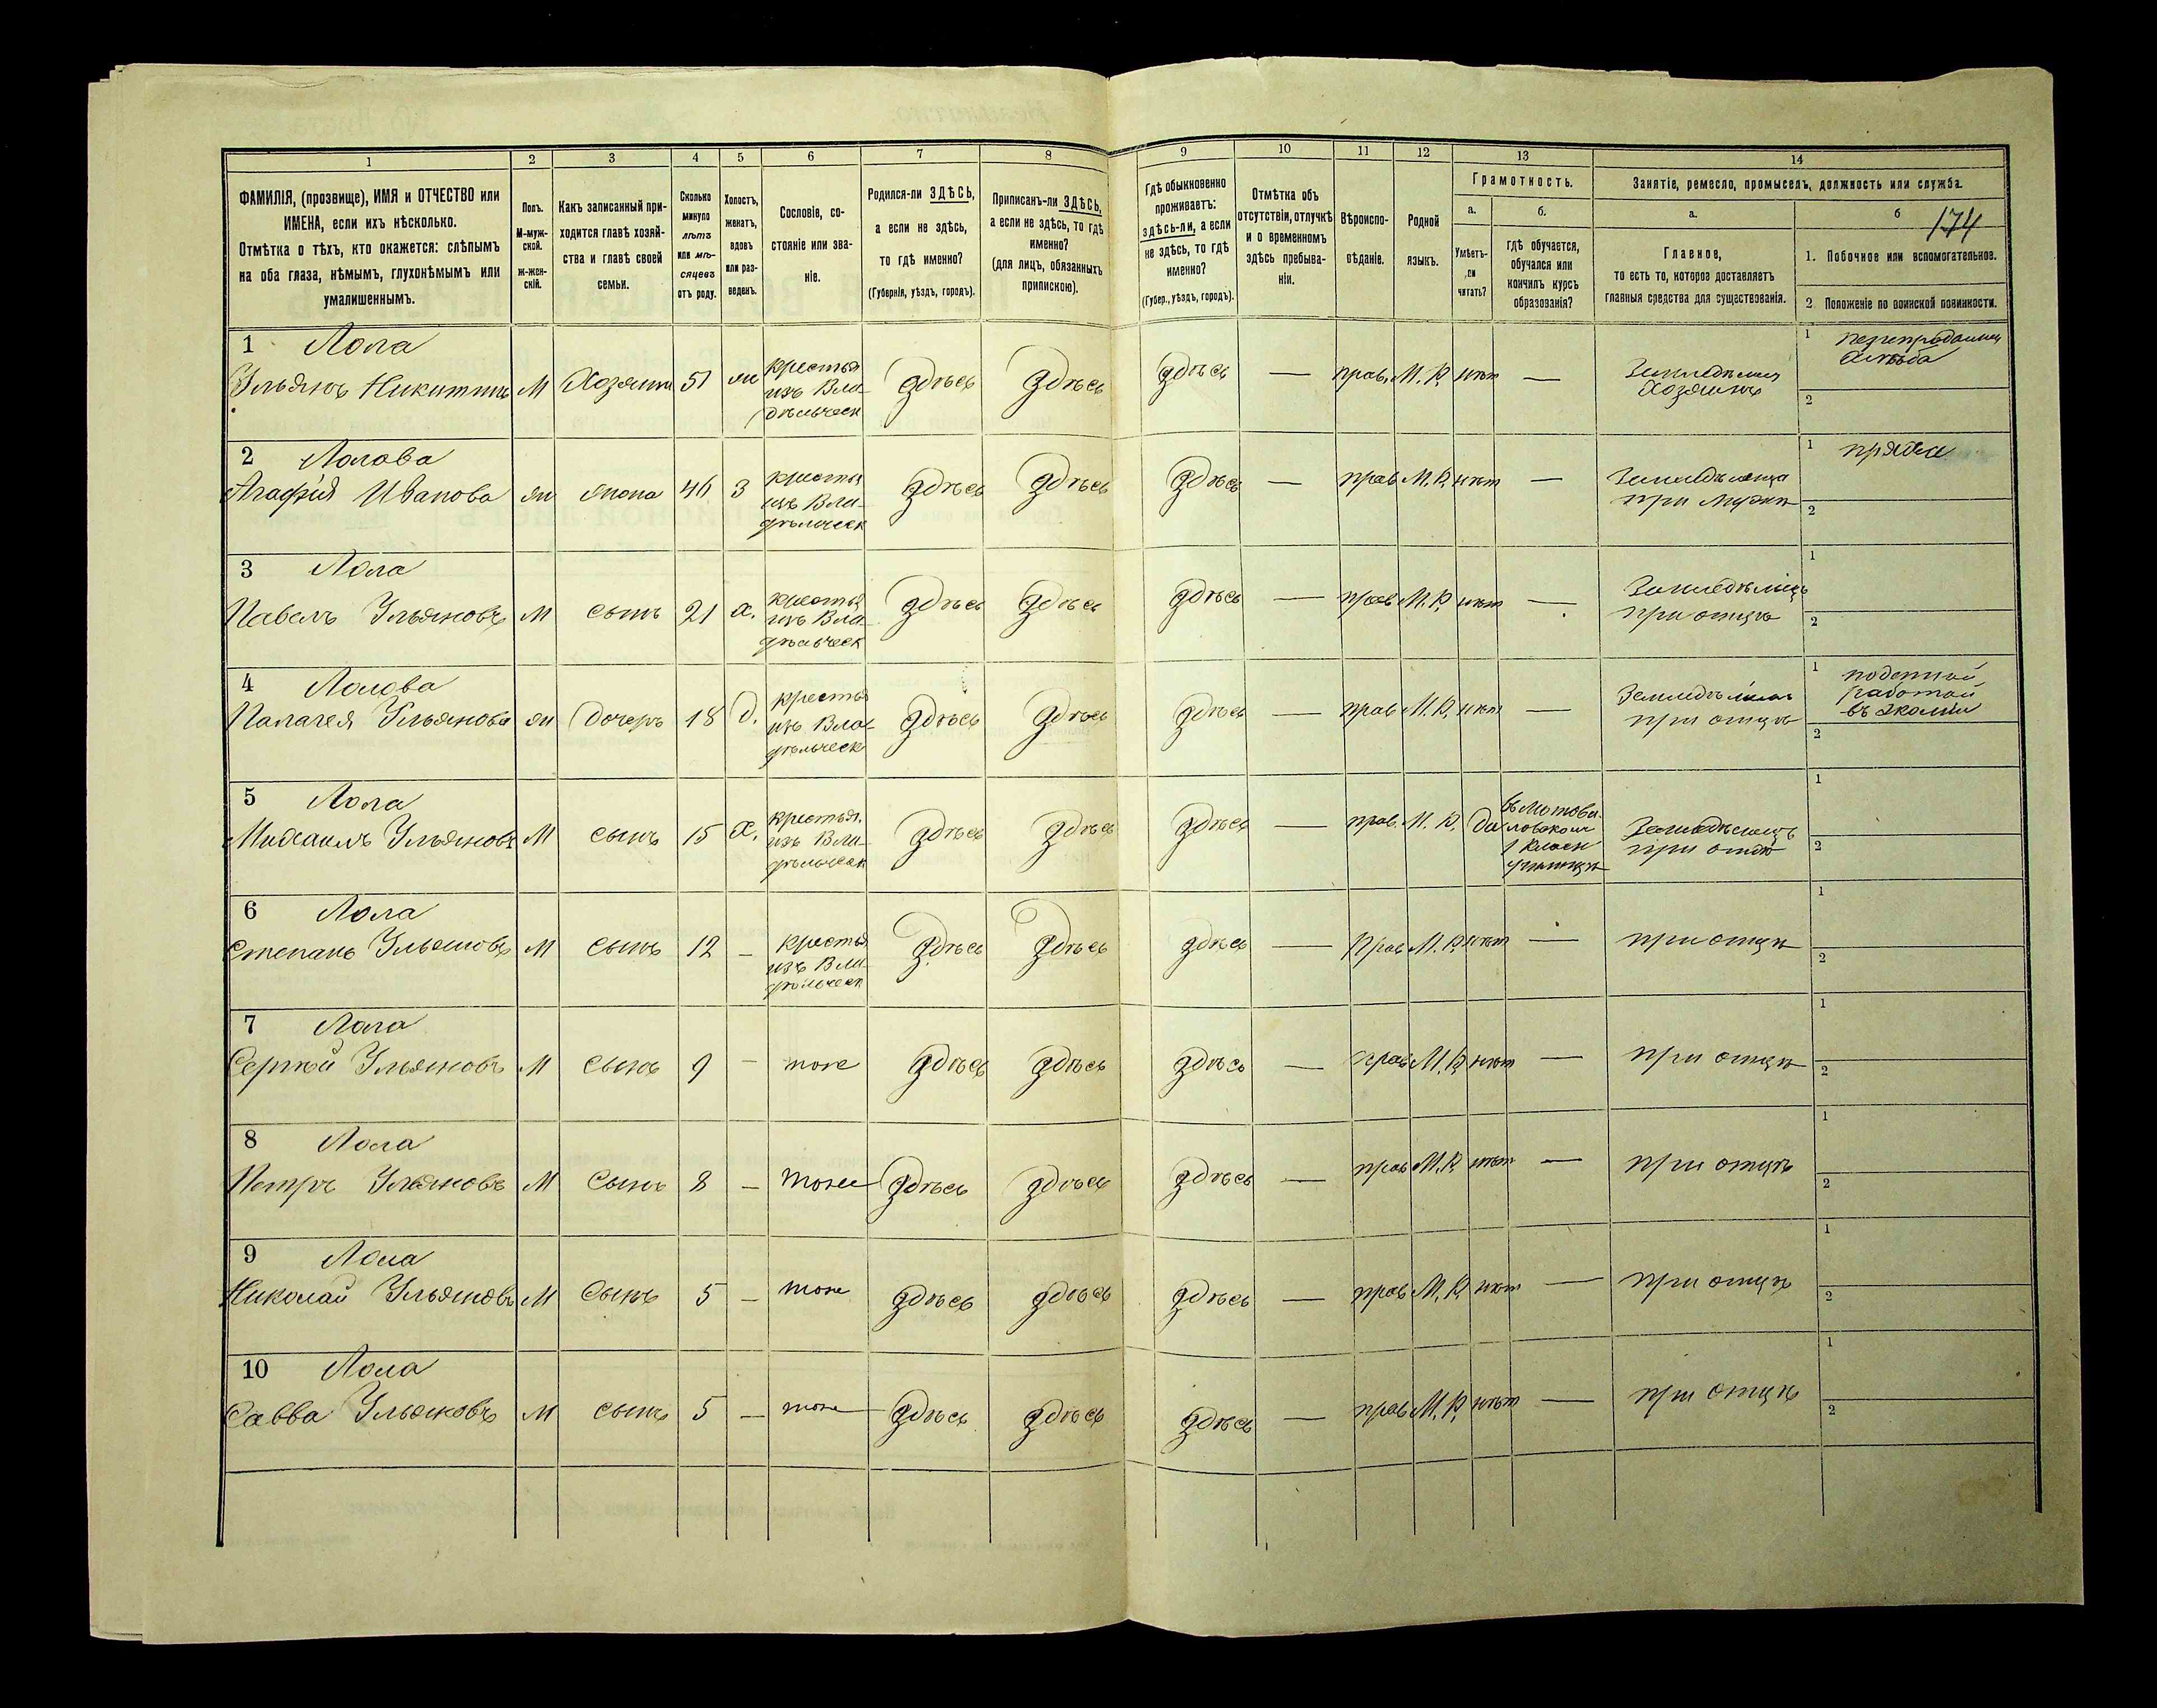 1 2 3 4 5 6 7 8 9 10 11 12 13 14
ФАМИЛІЯ, (прозвище), ИМЯ и ОТЧЕСТВО или
ИМЕНА, если ихъ нѣсколько.
Отмѣтка о тѣхъ, кто окажется: слѣпымъ
на оба глаза, нѣмымъ, глухонѣмымъ или
умалишеннымъ.
Полъ.
М-муж-
ской.
Ж-жен-
скій.
Какъ записанный при-
ходится главѣ хозяй-
ства и главѣ своей
семьи.
Сколько
минуло
лѣтъ
или мѣ-
сяцевъ
отъ роду.
Холостъ,
женатъ,
вдовъ
или раз-
веденъ.
Сословіе, со-
стояніе или зва-
ніе.
Родился-ли ЗДѢСЬ,
а если не здѣсь,
то гдѣ именно?
(Губернія, уѣздъ, городъ).
Приписанъ-ли ЗДѢСЬ,
а если не здѣсь, то гдѣ
именно?
(для лицъ, обязанныхъ
припискою).
Гдѣ обыкновенно
проживаетъ:
здѣсь-ли, а если
не здѣсь, то гдѣ
именно?
(Губер., уѣздъ, городъ).
Отмѣтка объ
отсутствіи, отлучкѣ
и о временномъ
здѣсь пребыва-
ніи.
Вѣроиспо-
вѣданіе.
Родной
языкъ.
Грамотность.
а.
Умѣетъ-
ли
читать?
б.
Гдѣ обучается,
обучался или
кончилъ курсъ
образованія?
Занятіе, ремесло, промыселъ, должность или служба.
а.
Главное,
то есть то, которое доставляетъ
главныя средства для существованія.
б
174
1. Побочное или вспомогательное.
2 Положеніе по воинской повинности.
1 Лола
Ульянъ Никитинъ М Хозяинъ 51 ж
крестья
изъ Вла-
дѣльческ
здѣсь здѣсь здѣсь — прав. М. Р. нѣт —
Хозяинъ
1
хлѣба
2
2 Лолова
Агафія Иванова ж жена 46 З
крестья
изъ Вла-
дѣльческ
здѣсь здѣсь здѣсь — прав М. Р. нѣт —
при мужѣ
1 пряжа
2
3 Лола
Павелъ Ульяновъ М сынъ 21 х.
крестья
изъ Вла-
дѣльческ
здѣсь здѣсь здѣсь — прав М. Р. нѣт —
Земледѣлецъ
при отцѣ
1
2
4 Лолова
Палагея Ульянова ж Дочерь 18 д.
крестья
изъ Вла-
дѣльческ
здѣсь здѣсь здѣсь — прав М. Р. нѣт —
при отцѣ
1 поденной
работой
въ экомии
2
5 Лола
Михаилъ Ульяновъ М сынъ 15 х.
крестья.
изъ Вла-
дѣльческ
здѣсь здѣсь здѣсь — прав. М. Р. да
въ Мотови-
ловском
1 класн
училищѣ
Земледѣлецъ
при отцѣ
1
2
6 Лола
Степанъ Ульяновъ М сынъ 12 —
крестья
изъ Вла-
дѣльческ
здѣсь здѣсь здѣсь — прав М. Р. нѣт — при отцѣ
1
2
7 Лола
Сергѣй Ульяновъ М сынъ 9 — тоже здѣсь здѣсь здѣсь — прав М. Р. нѣт — при отцѣ
1
2
8 Лола
Петръ Ульяновъ М Сынъ 8 — тоже здѣсь здѣсь здѣсь — прав М. Р. нѣт — при отцѣ
1
2
9 Лола
Николай Ульяновъ М Сынъ 5 — тоже здѣсь здѣсь здѣсь — прав М. Р. нѣт — при отцѣ
1
2
10 Лола
Савва Ульяновъ М сынъ 5 — тоже здѣсь здѣсь здѣсь — прав М. Р. нѣт — при отцѣ
1
2